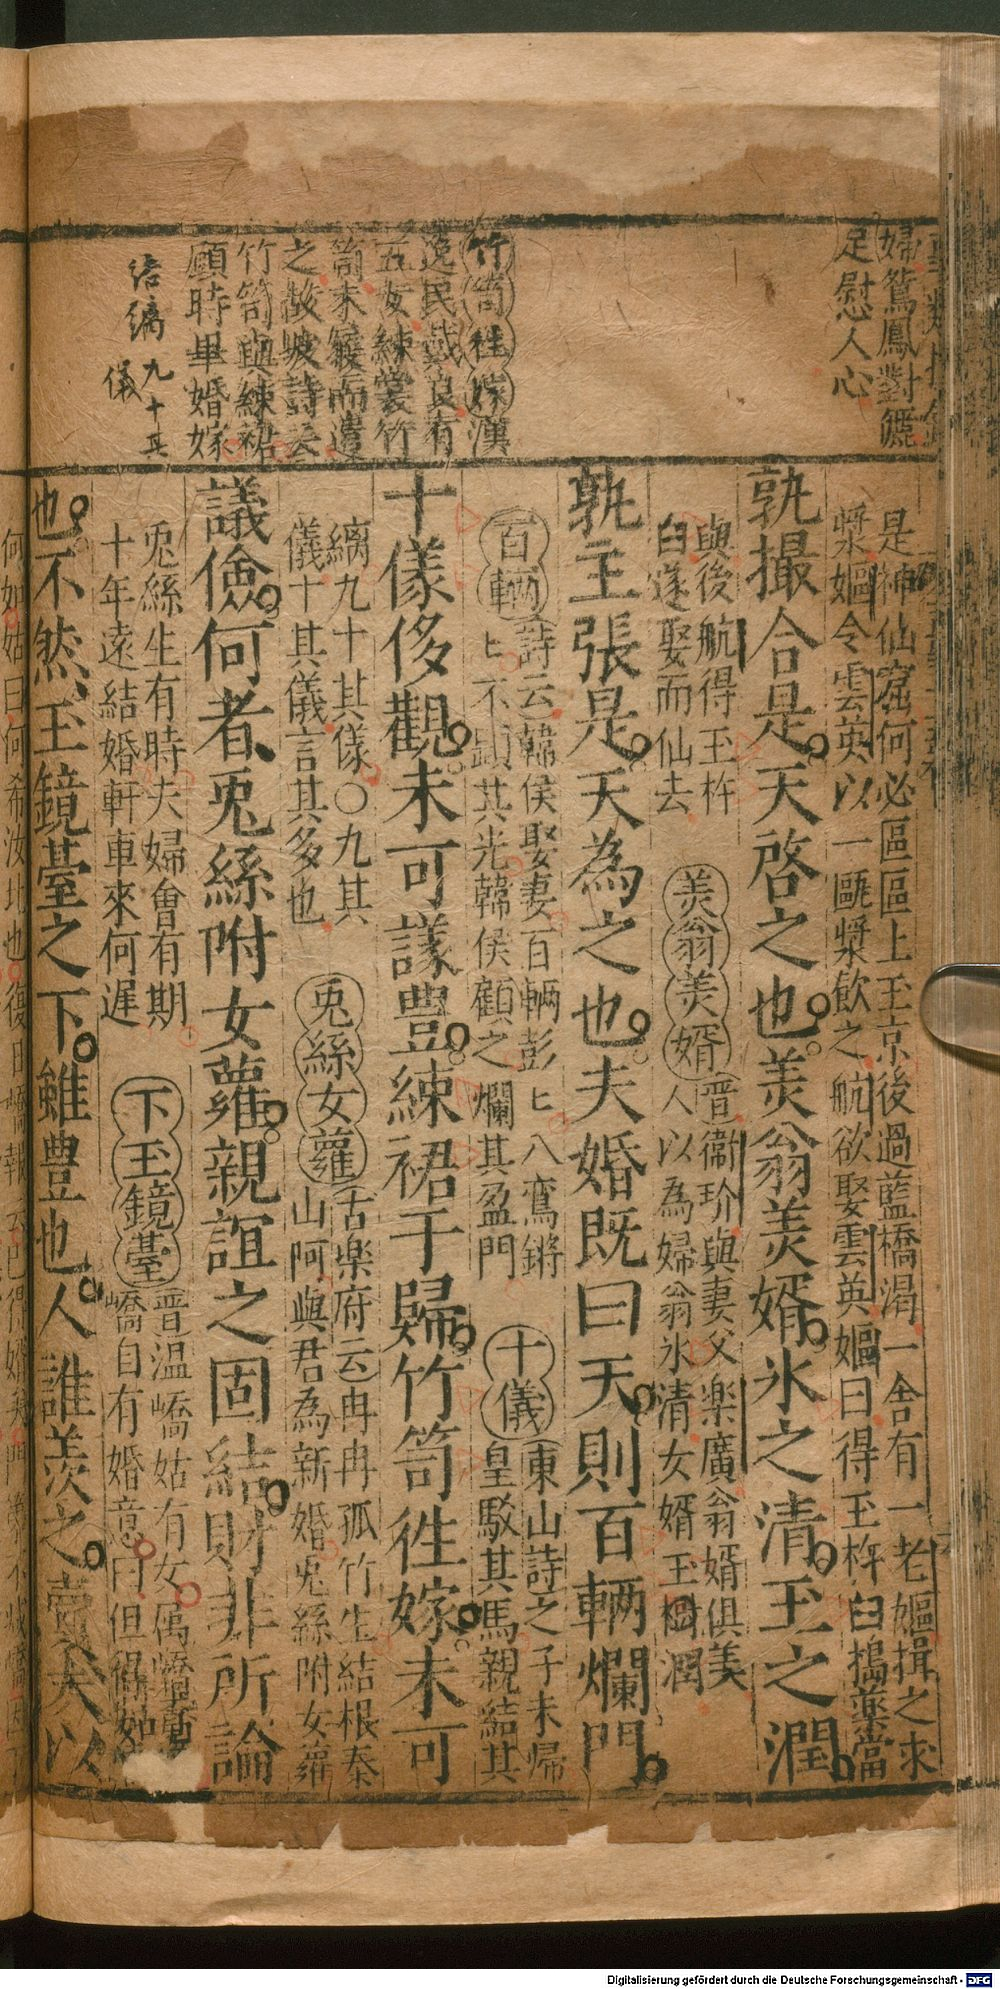 婦鴛鳳對鑣
足慰人心
竹笥徃嫁漢
逸民戴良有
五女練裳竹
笥未嫁而遣
之故坡詩云
竹笥與練裙
願時畢婚嫁
結縭九十其
儀
是神仙窟何必區區上玉京後過藍橋渴一舍有一老嫗揖之求
漿嫗令雲英以一甌漿飲之航欲娶雲英嫗曰得玉杵臼搗藥當
孰撮合是天啓之也羙翁羙婿氷之清玉之潤
與後航得玉杵
臼遂娶而仙去
羙翁羙婿晋衛玠與妻父楽廣翁婿俱美
人以為婦翁氷清女婿玉潤
孰主張是天為之也夫婚既曰天則百輌爛門
百輌詩云韓侯娶妻百輌彭〻八鸞鏘
〻不顕其光韓侯顧之爛其盈門
十儀東山詩之子未帰
皇駁其馬親結其
十儀侈觀未可議豊練裙于歸竹笥徃嫁未可
縭九十其儀〇九其
儀十其儀言其多也
兎絲女蘿古楽府云冉冉孤竹生結根泰
山阿與君為新婚兎絲附女蘿
議儉何者兎絲附女蘿親誼之固結財非所論
兎絲生有時夫婦會有期
十年遠結婚軒車來何遅
下玉鏡臺晋温嶠姑有女属嶠
嶠自有婚意曰但得如
也不然玉鏡臺之下雖豊也人誰羨之賣犬以
何如姑曰何希汝比也復日嶠報云已得婚
Digitalisierung gefördert durch die Deutsche Forschungsgemeinschaft - DFG